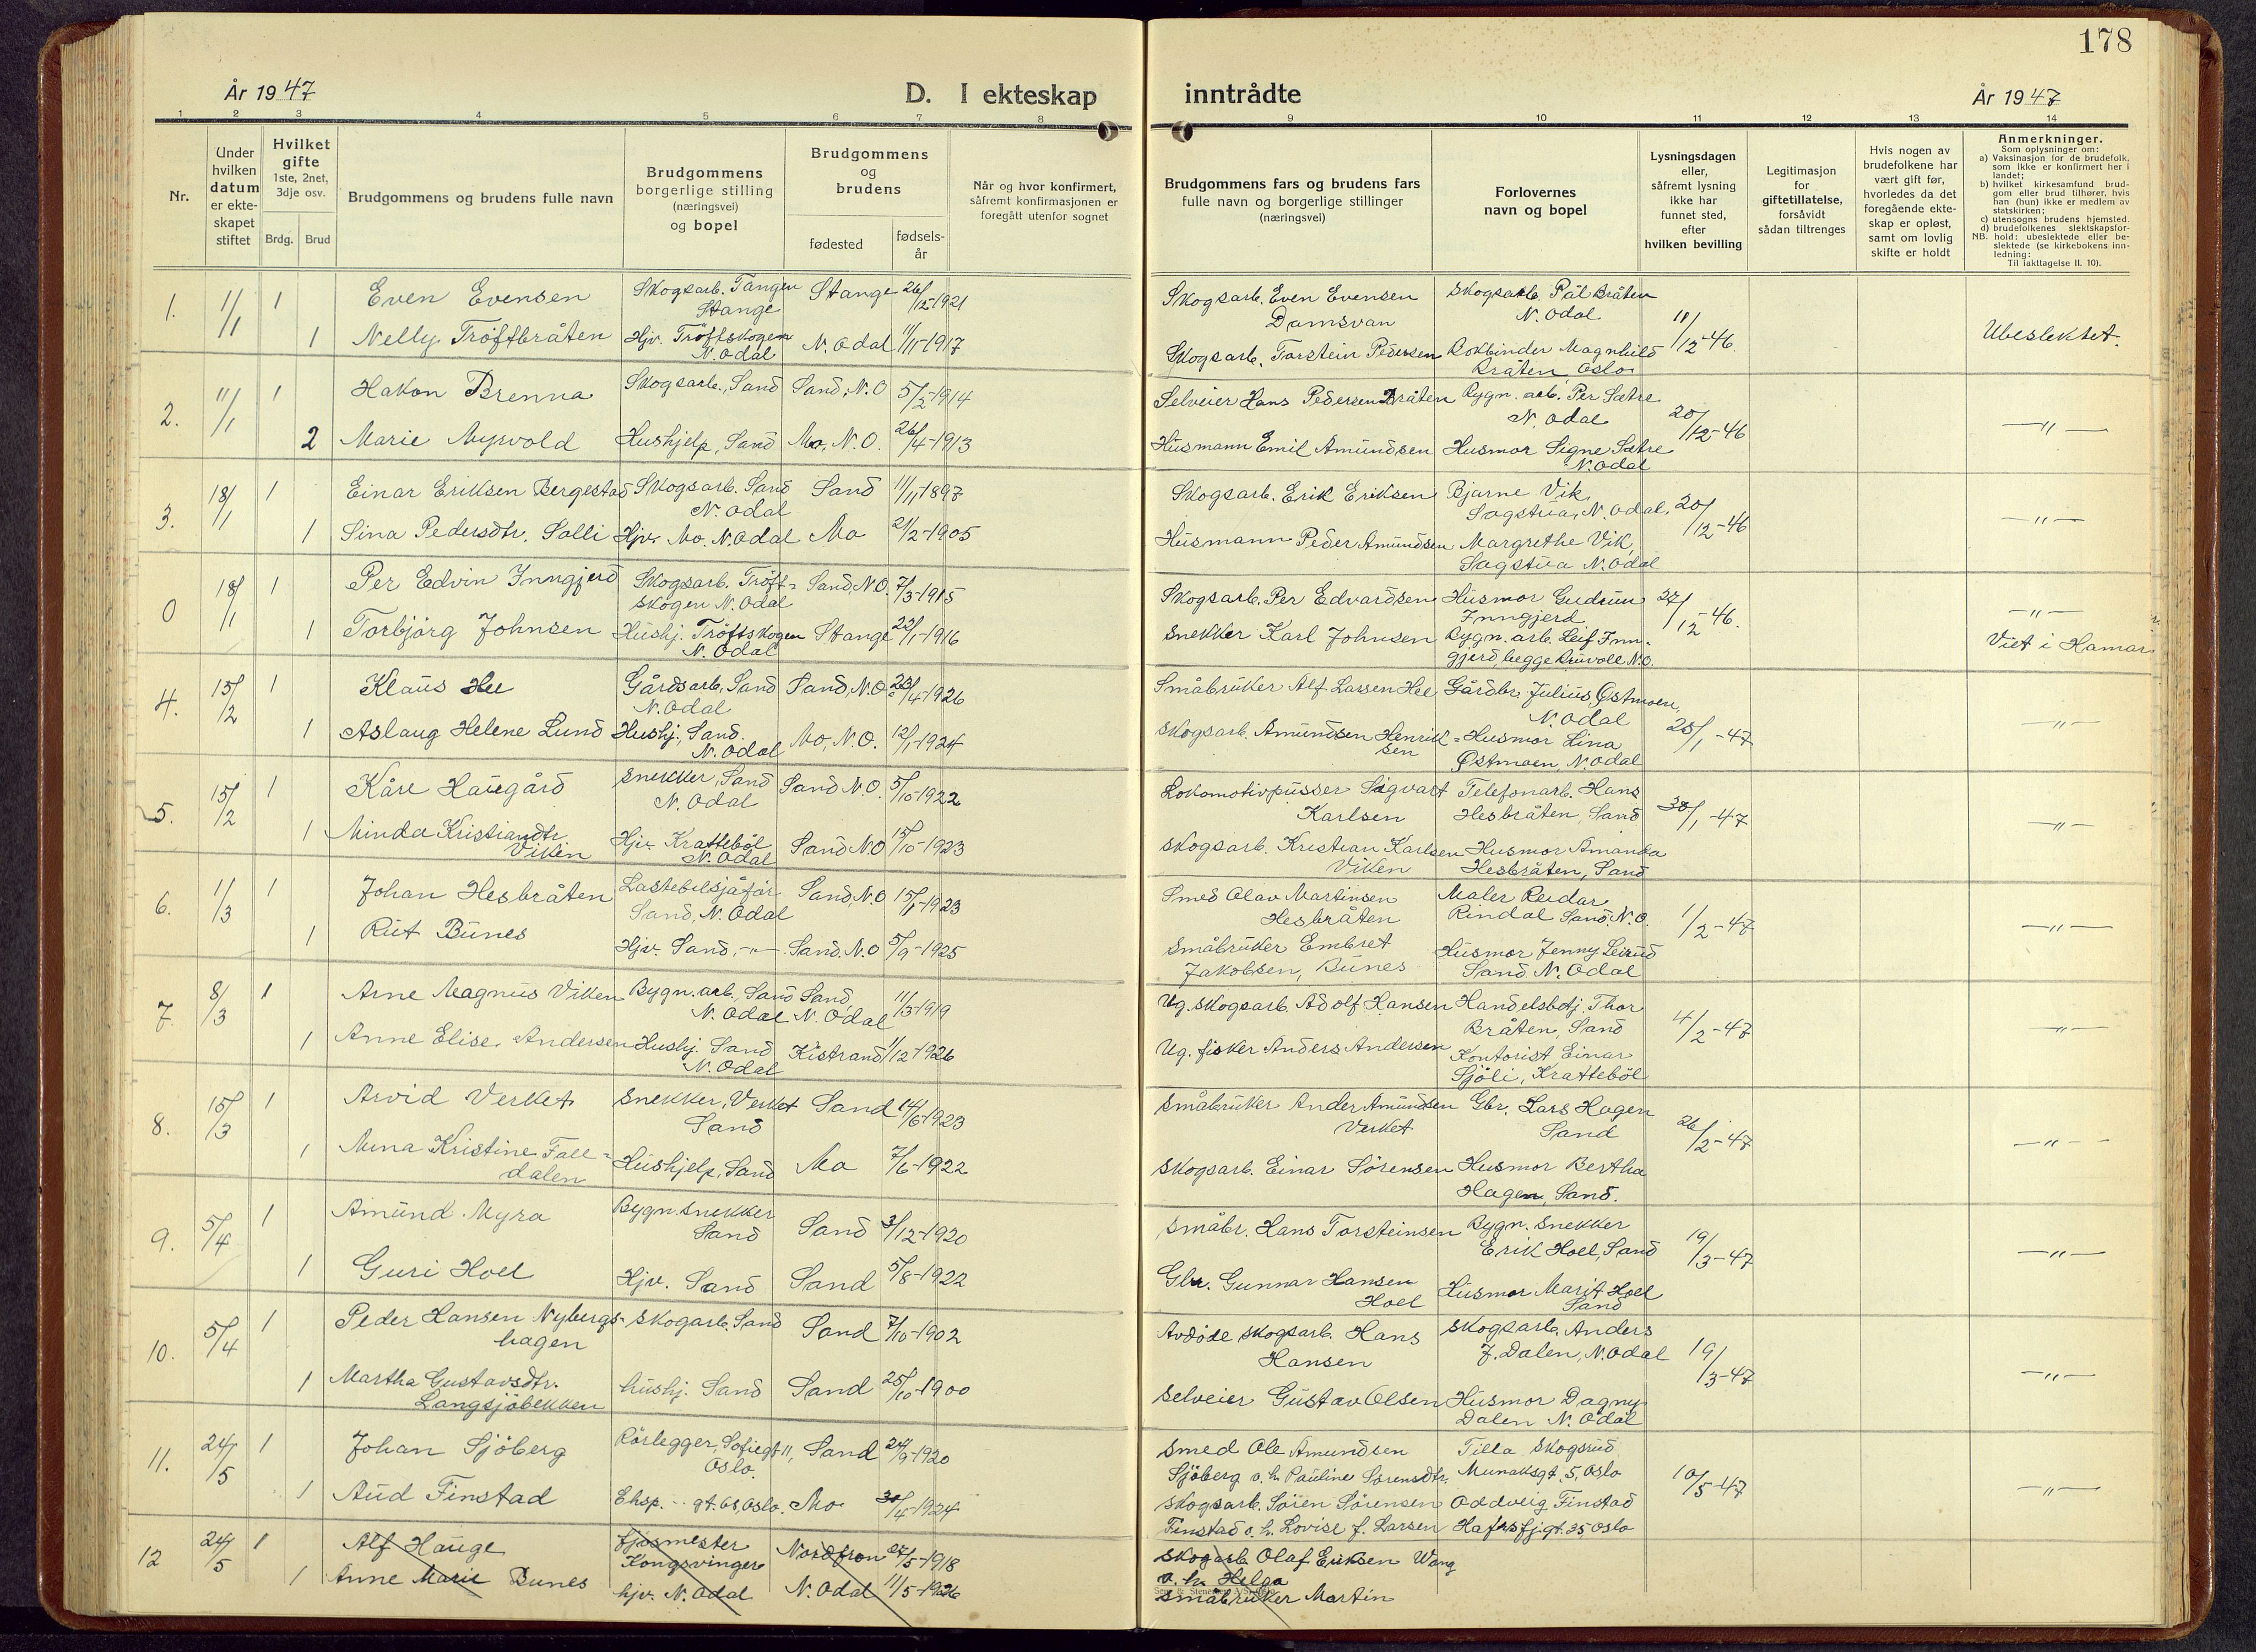 178
År 1947
D. I ekteskap
inntrådte
År 1947
1 2 3 4 5 6 7 8 9 10 11 12 13 14
Nr.
Under
hvilken
datum
er ekte-
skapet
stiftet
Hvilket
gifte
1ste, 2net,
3dje osv.
Brdg.
Brud
Brudgommens og brudens fulle navn
Brudgommens
borgerlige stilling
(næringsvei)
og bopel
Brudgommens
og
brudens
fødested
fødsels-
år
Når og hvor konfirmert,
såfremt konfirmasjonen er
foregått utenfor sognet
Brudgommens fars og brudens fars
fulle navn og borgerlige stillinger
(næringsvei)
Forlovernes
navn og bopel
Lysningsdagen
eller,
såfremt lysning
ikke har
funnet sted,
efter
hvilken bevilling
Legitimasjon
for
giftetillatelse,
forsåvidt
sådan tiltrenges
Hvis nogen av
brudefolkene har
vært gift før,
hvorledes da det
foregående ekte-
skap er opløst,
samt om lovlig
skifte er holdt
Anmerkninger.
Som oplysninger om:
a) Vaksinasjon for de brudefolk,
som ikke er konfirmert her i
landet;
b) hvilket kirkesamfund brud-
gom eller brud tilhører, hvis
han (hun) ikke er medlem av
statskirken;
c) utensogns brudens hjemsted.
d) brudefolkenes slektskapsfor-
NB. hold: ubeslektede eller be-
slektede (se kirkebokens inn-
ledning:
Til iakttagelse II. 10).
1. 11/1 1 Even Evensen Skogsarb. Tangen Stange 26/12-1921 Skogsarb. Even Evensen Skogsarb. Pål Bråten
Stange Damsvan N. Odal 11/12-46. Ubeslektet.
1 Nelly Tröftbråten Hjv. Tröftskogen N. Odal 11/11-1917 Skogsarb. Torstein Pedersen Bokbinder Magnhild
N. Odal Bråten Oslo
2. 11/1 1 Hakon Brenna Skogsarb., Sand Sand, N.O 5/2-1914 Selveier Hans Pedersen Bråten Bygn. arb. Per Sætre
N. Odal 20/12-46 —"—
2 Marie Myrvold Hushjelp, Sand Mo, N.O. 26/4-1913 Husmann Emil Amundsen Husmor Signe Sætre
N. Odal
3. 18/1 1 Einar Eriksen Bergestad Skogsarb. Sand Sand 11/11-1897 Skogsarb. Erik Eriksen Bjarne Vik
N. Odal Sagstua, N. Odal. 20/12-46 —"—
1 Sina Pedersdtr. Solli Hjv. Mo. N. Odal Mo 21/2-1905 Husmann Peder Amundsen Margrethe Vik,
Sagstua N. Odal
0 18/1 1 Per Edvin Inngjerd Skogsarb. Tröft= Sand, N.O. 7/3-1915 Skogsarb. Per Edvardsen Husmor Gudrun 27/12-46. —"—
skogen N. Odal Inngjerd
1 Torbjörg Johnsen Hushj. Tröftskogen Stange 22/1-1916 Snekker Karl Johnsen Bygn. arb. Leif Inn- Viet i Hamar
N. Odal gjerd, begge Bruvoll N.O.
4. 15/2 1 Klaus Hee Gårdsarb, Sand Sand, N.O. 23/4-1926 Småbruker Alf Larsen Hee Gårdbr. Julius Østmoen,
N. Odal N. Odal 25/1-47 —"—
1 Aslaug Helene Lund Hushj., Sand. Mo, N.O. 12/1-1924 Skogsarb. Amundsen Henrik= Husmor Lina
N. Odal sen Østmoen, N. Odal
5. 15/2 1 Kåre Haugård Snekker, Sand Sand N.O. 5/10-1922 Lokomotivpusser Sigvart Telefonarb. Hans
N. Odal Karlsen Hesbråten, Sand 30/1-47 —"—
1 Minda Kristiandtr. Hjv. Kratteböl Sand N.O 15/10-1923 Skogsarb. Kristian Karlsen Husmor Amanda
Viken N. Odal Viken Hesbråten, Sand
6. 1/3 1 Johan Hesbråten Lastebilsjåför Sand, N.O 15/1-1923 Smed Olav Martinsen Maler Reidar
Sand, N. Odal Hesbråten Rindal Sand. N.O. 1/2-47 —"—
1 Rut Bunes Hjv. Sand. —"— Sand. N.O 5/9-1925 Småbruker Embret Husmor Jenny Leirud
Jakobsen, Bunes Sand N. Odal
7. 8/3 1 Arne Magnus Viken Bygn. arb., Sand Sand, 11/3-1919 Ug. skogsarb. Adolf Hansen Handelsbetj. Thor
N. Odal N. Odal Bråten, Sand 4/2-47 —"—
1 Anne Elise Andersen Hushj. Sand Kistrand 11/12-1926 Ug. fisker Anders Andersen Kontorist Einar
N. Odal Sjöli, Kratteböl
8. 15/3 1 Arvid Verket Snekker, Verket Sand 14/6-1923 Småbruker Ander Amundsen Gbr. Lars Hagen
Sand Verket Sand 26/2-47 —"—
1 Kristine Fall= Hushjelp, Sand Mo 7/6-1922 Skogsarb. Einar Sörensen Husmor Bertha
dalen Hagen, Sand.
9. 5/4 1 Amund Myra Bygn. snekker Sand 3/12-1920 Småbr. Hans Torsteinsen Bygn. Snekker
Sand Erik Hoel, Sand 19/3-47 —"—
1 Guri Hoel Hjv. Sand Sand 5/8-1922 Gbr. Gunnar Hansen Husmor Marit Hoel
Hoel Sand
10. 5/4 1 Peder Hansen Nybergs- Skogarb. Sand Sand 7/10-1902 Avdøde skogsarb. Hans Skogsarb. Anders
hagen Hansen J. Dalen, N. Odal 19/3-47 —"—
1 Martha Gustavsdtr. hushj. Sand Sand 25/10-1900 Selveier Gustav Olsen Husmor Dagny
Langsjöbekken Dalen N. Odal
11. 24/5 1 Johan Sjöberg Rörlegger, Sofiegt 11, Sand 24/9-1920 Smed Ole Amundsen Tilla Skogsrud
Oslo. Sjöberg o. h. Pauline Sorensdtr. Munaksgt. 5, Oslo 10/5-47
1 Aud Finstad Eksp. gt. 68, Oslo. Mo 30/4-1924 Skogsarb. Sören Sörensen Oddveig Finstad —"—
Finstad o. h. Lovise f. Larsen Hafrsfj.gt. 35 Oslo
12 24/5 1 Alf Hauge fjøsmester Nordfron 27/5-1918 Skogarb Olaf Eriksen Wang
Kongsvinger o. h. Helga
1 Anne Marie Bunes hjv. N. Odal N. Odal 11/5-1926 Småbruker Martin